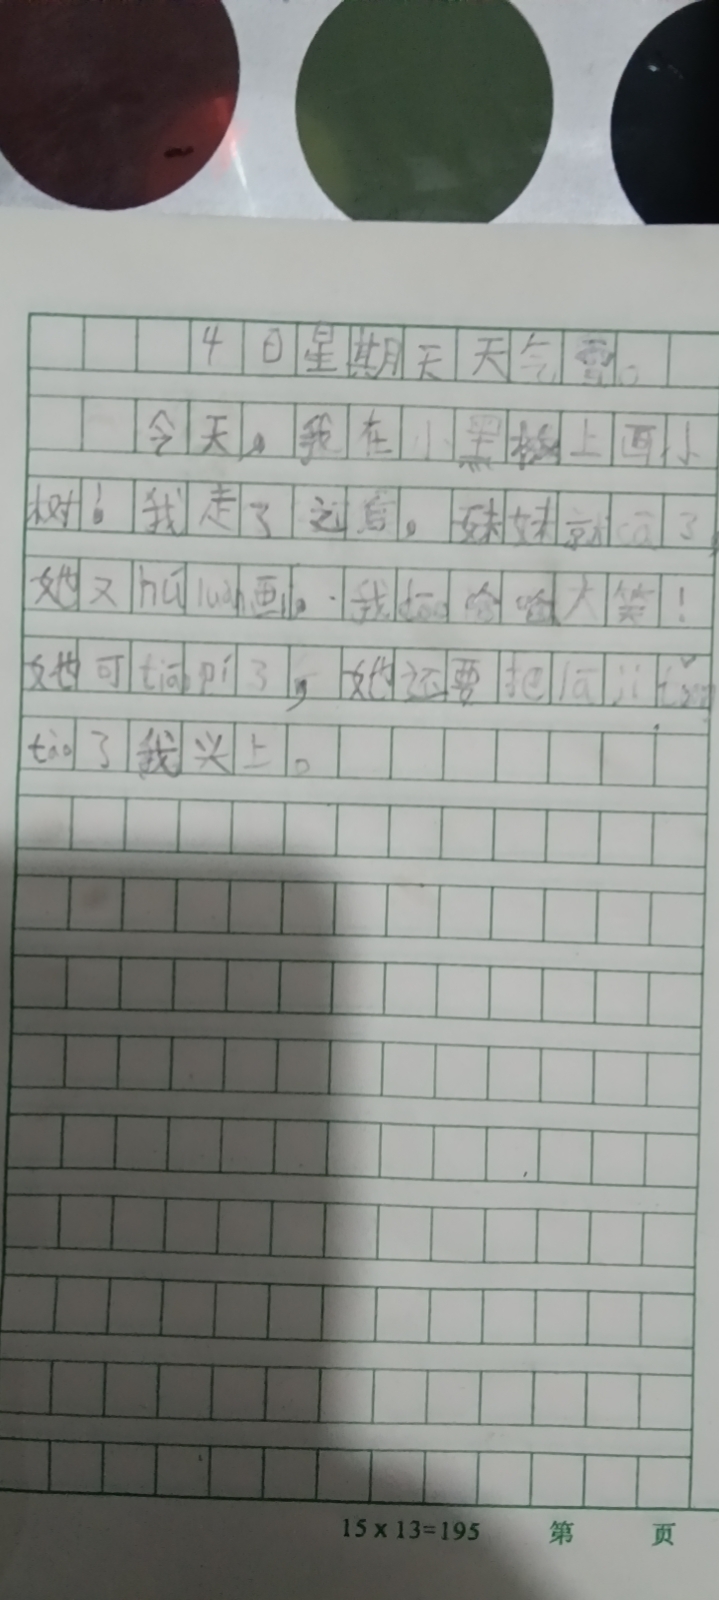 4日星期天天气雪。
今天，我在小黑板上画小
树！我走了之后，妹妹就cā了，
她又hú luàn画。我dōu哈哈大笑！
她可tiáo pí了，她还要把lā jī tǒng
tào了我头上。
15 x 13=195 第 页